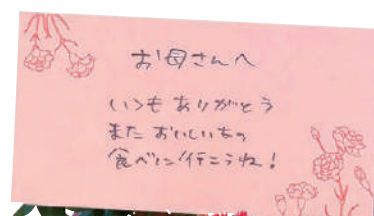 お母さんへ
いつもありがとう
またおいしいもの
食べに行こうね!